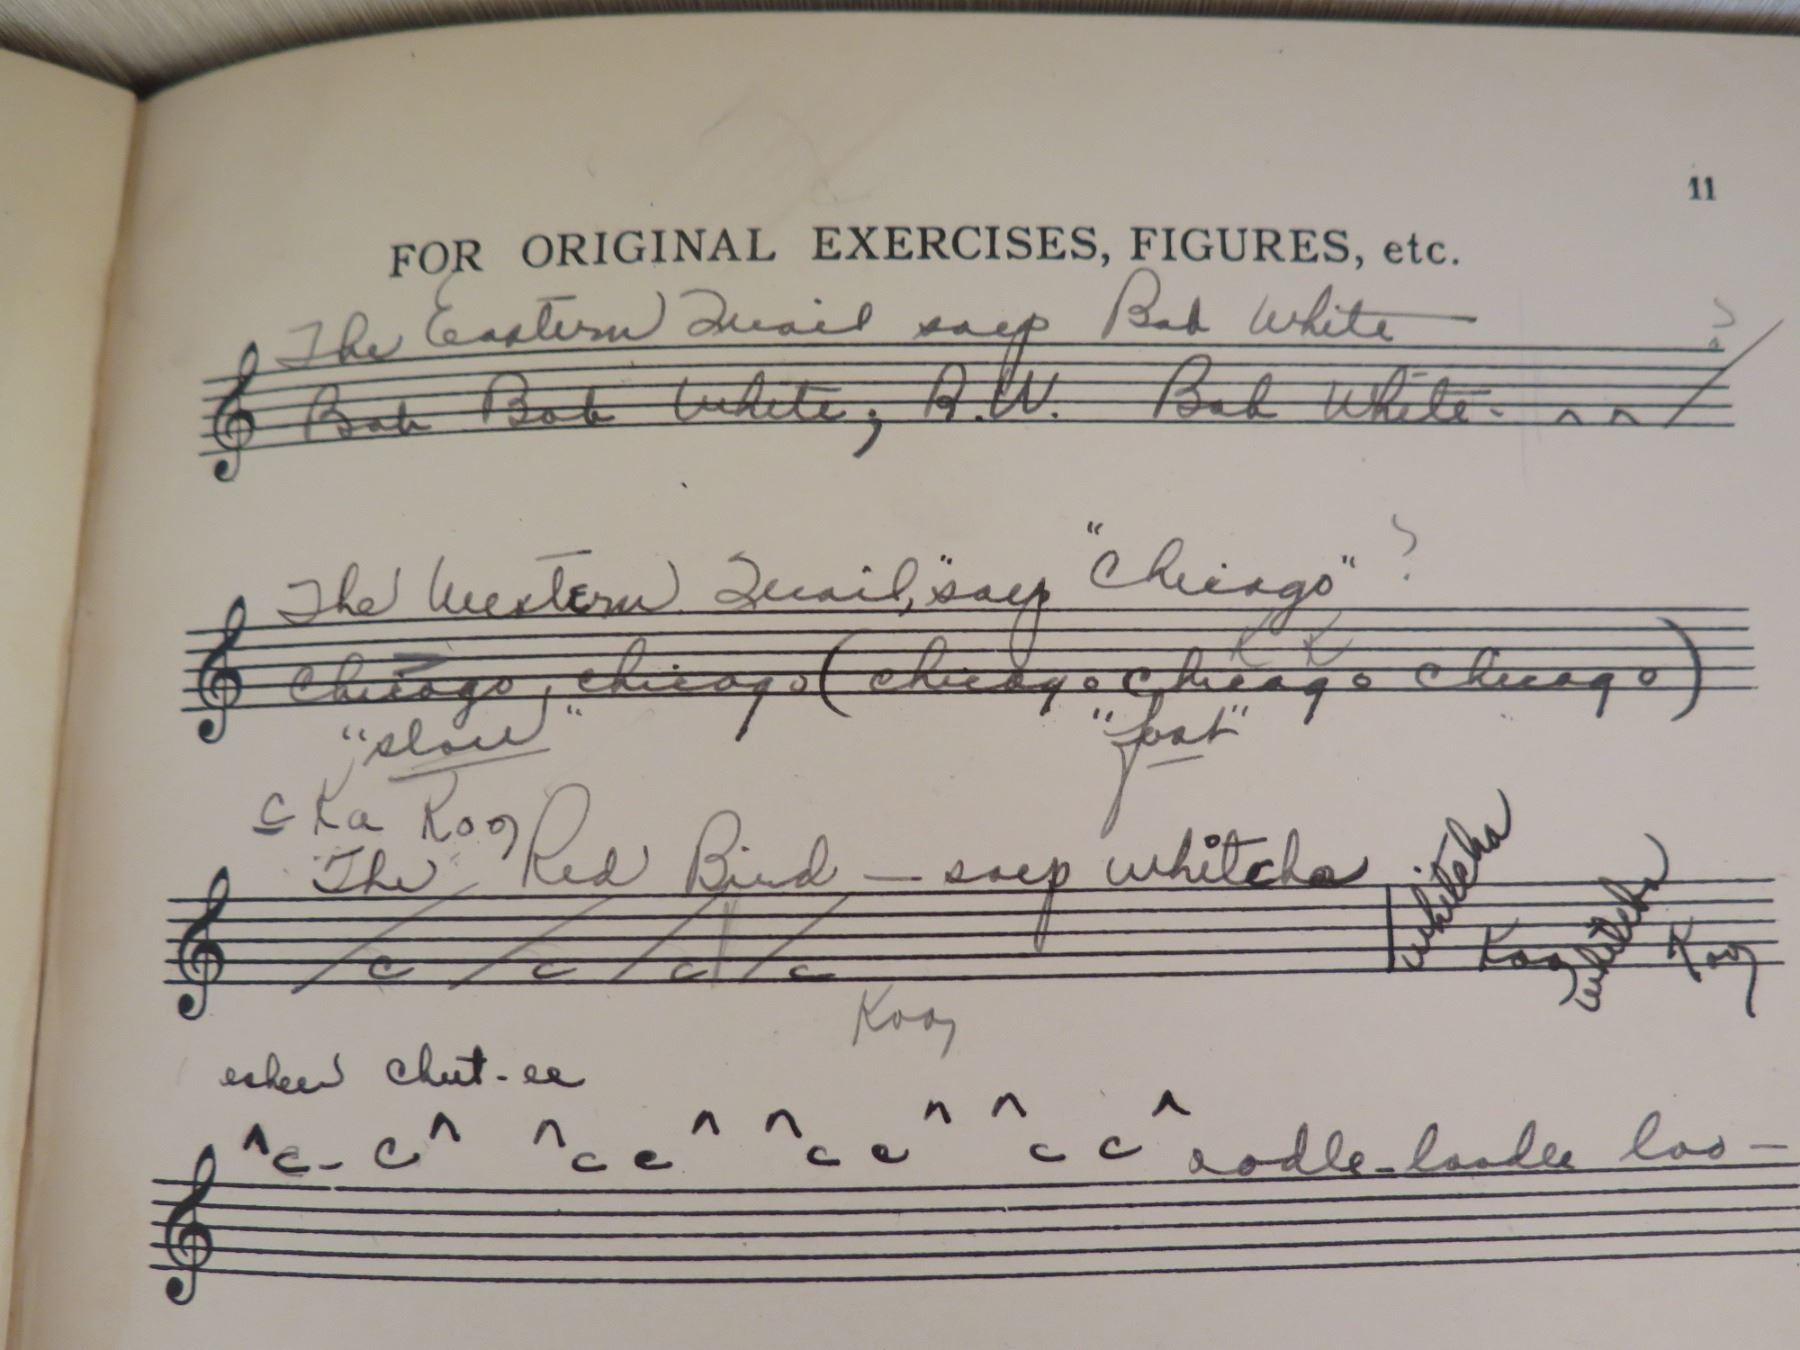 11
FOR ORIGINAL EXERCISES, FIGURES, etc.
The Eastern Quail says Bob White — ?
Bob Bob White; B.W. Bob White - ^ ^ /
The Western Quail," says "Chicago" ?
Chicago, chicago (chicago chicago chicago)
"slow" "fast"
c Ka Koo
The Red Bird — says whitcha whitcha
c c c c Koo whitcha Koo
Koo
chut-ee
^ c - c ^ ^ c c ^ ^ c c ^ ^ c c ^ oodle-loodle loo —